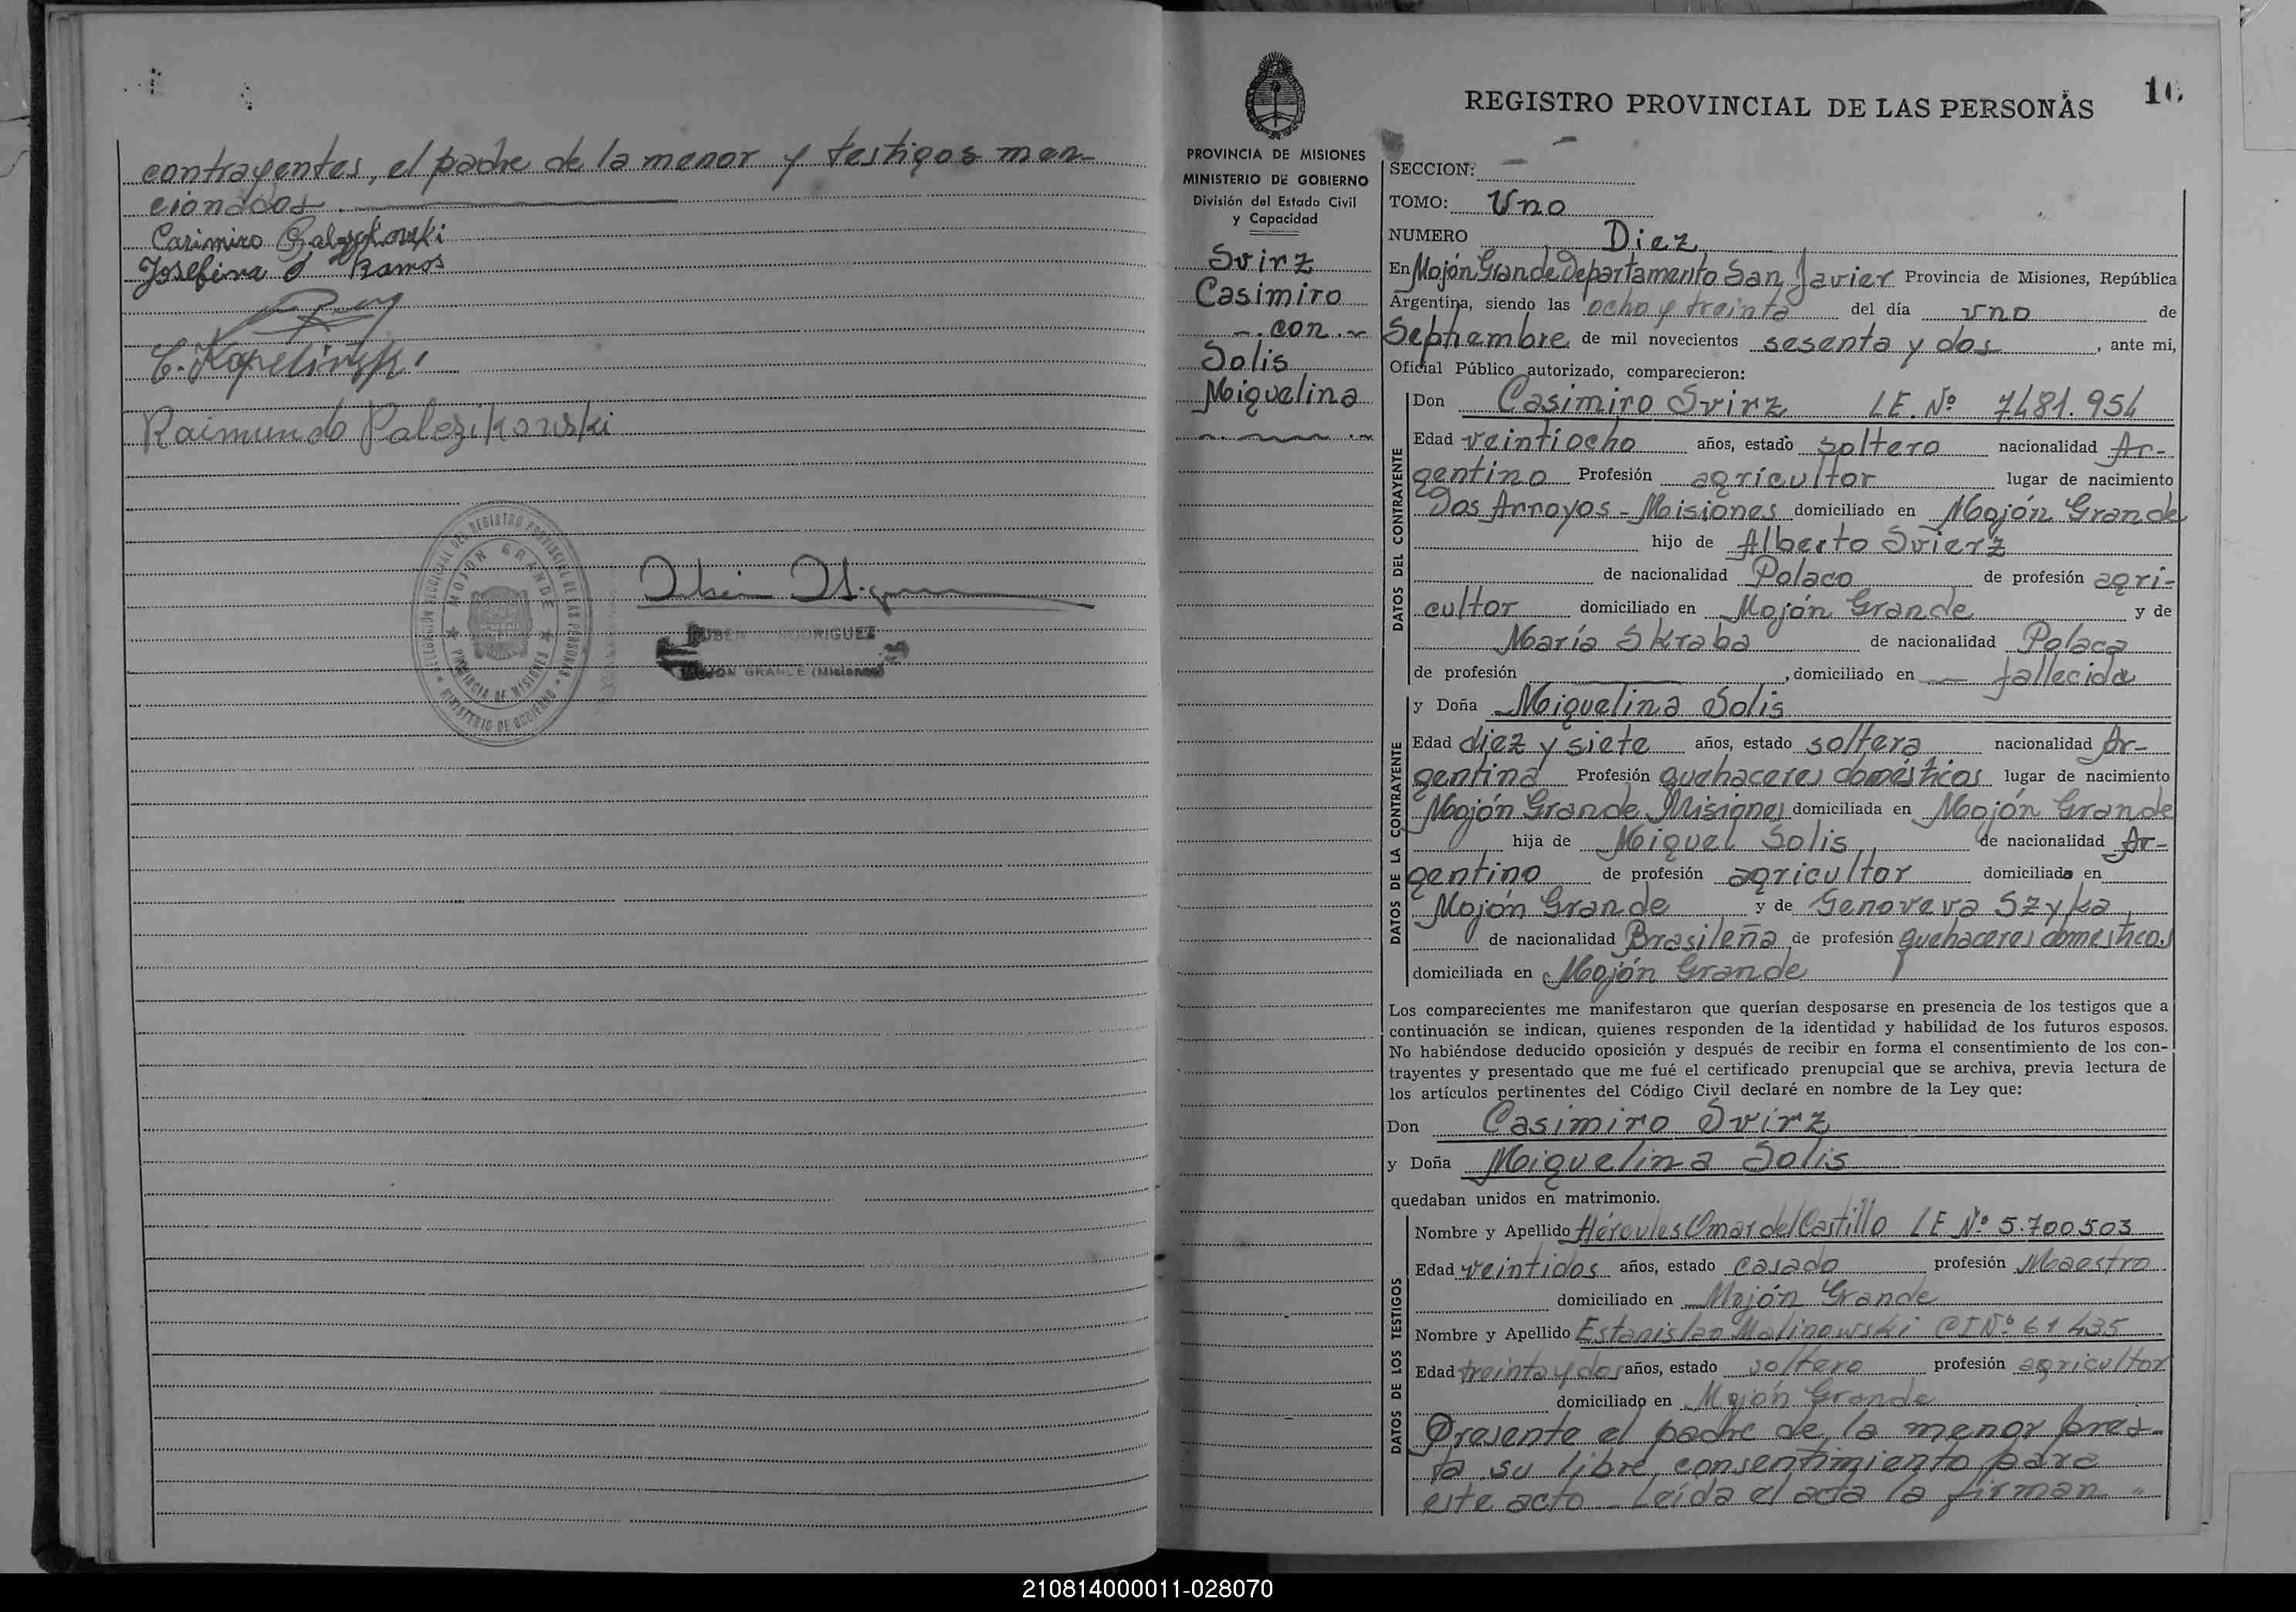 contrayentes, el padre de la menor y testigos men-
cionados.
Casimiro
Josefina d Ramos
Raimundo Palezikowski
DELEGACION SECCIONAL DEL REGISTRO PROVINCIAL DE LAS PERSONAS
MOJON GRANDE
PROVINCIA DE MISIONES
MINISTERIO DE GOBIERNO
RUBEN RODRIGUEZ
MOJON GRANDE (Misiones)
REGISTRO PROVINCIAL DE LAS PERSONAS
PROVINCIA DE MISIONES
MINISTERIO DE GOBIERNO
División del Estado Civil
y Capacidad
Svirz
Casimiro
-.con.-
Solis
Miguelina
SECCION: -
TOMO: Uno
NUMERO Diez
En Mojón Grande Departamento San Javier Provincia de Misiones, República
Argentina, siendo las ocho y treinta del día uno de
Septiembre de mil novecientos sesenta y dos, ante mi,
Oficial Público autorizado, comparecieron:
DATOS DEL CONTRAYENTE
Don Casimiro Svirz LE. Nº 7.481.954
Edad veintiocho años, estado soltero nacionalidad Ar-
gentino Profesión agricultor lugar de nacimiento
Dos Arroyos - Misiones domiciliado en Mojón Grande
hijo de Alberto Svierz
de nacionalidad Polaco de profesión agri-
cultor domiciliado en Mojón Grande y de
María Skraba de nacionalidad Polaca
de profesión , domiciliado en — fallecida
DATOS DE LA CONTRAYENTE
y Doña Miguelina Solis
Edad diez y siete años, estado soltera nacionalidad Ar-
gentina Profesión quehaceres domésticos lugar de nacimiento
Mojón Grande Misiones domiciliada en Mojón Grande
hija de Miguel Solis de nacionalidad Ar-
gentino de profesión agricultor domiciliado en
Mojón Grande y de Genoveva Szyka
de nacionalidad Brasileña de profesión quehaceres domesticos
domiciliada en Mojón Grande
Los comparecientes me manifestaron que querían desposarse en presencia de los testigos que a
continuación se indican, quienes responden de la identidad y habilidad de los futuros esposos.
No habiéndose deducido oposición y después de recibir en forma el consentimiento de los con-
trayentes y presentado que me fué el certificado prenupcial que se archiva, previa lectura de
los artículos pertinentes del Código Civil declaré en nombre de la Ley que:
Don Casimiro Svirz
y Doña Miguelina Solis
quedaban unidos en matrimonio.
DATOS DE LOS TESTIGOS
Nombre y Apellido Hércules Omar del Castillo LE Nº 5.700503
Edad veintidos años, estado casado profesión Maestro
domiciliado en Mojón Grande
Nombre y Apellido Estanislao Malinowski CI Nº 61435
Edad treinta y dos años, estado soltero profesión agricultor
domiciliado en Mojón Grande
Presente el padre de la menor pres-
ta su libre consentimiento para
este acto - Leída el acta la firman
210814000011-028070